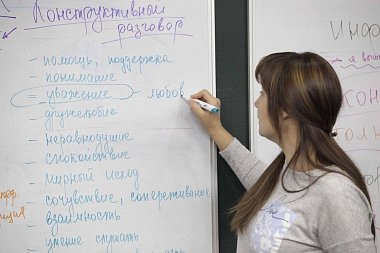 Конструктивный
разговор
- помощь, поддержка
- понимание
- уважение - любов
- дружелюбие
- неравнодушие
- спокойствие
- мирный исход
- сочувствие, сопереживание
- взаимность
- умение слушать
Инфо
я выш